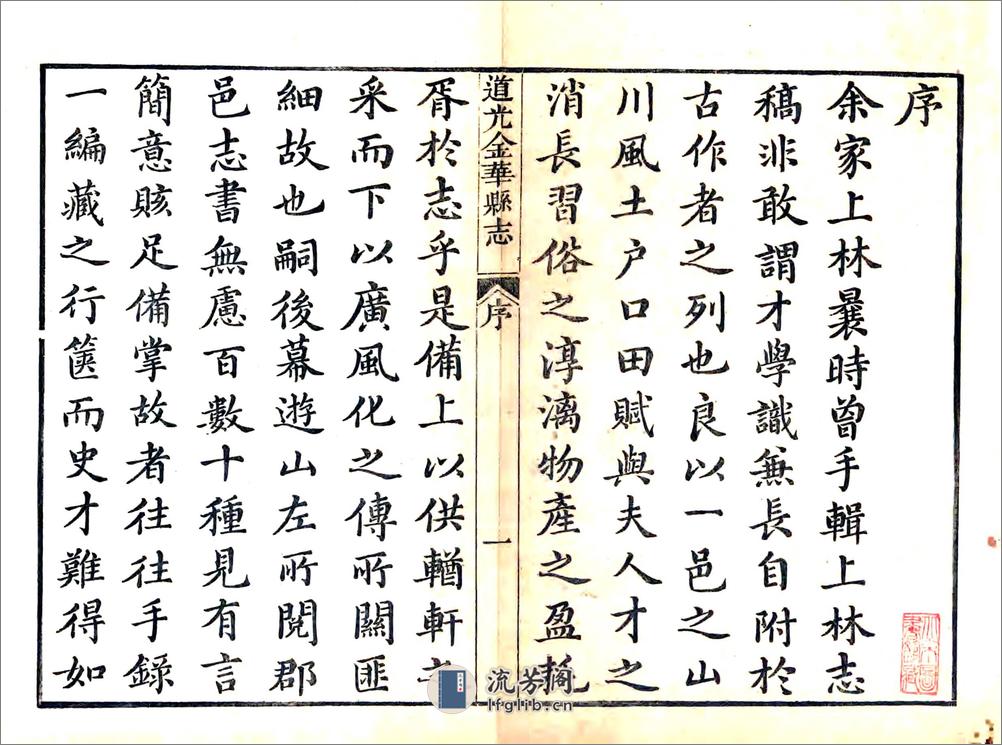 序
余家上林曩時曾手輯上林志
稿非敢謂才學識兼長自附於
古作者之列也良以一邑之山
川風土户口田賦與夫人才之
消長習俗之淳漓物產之盈耗
道光金華縣志
序
一
胥於志乎是備上以供輶軒之
采而下以廣風化之傳所關匪
細故也嗣後幕遊山左所閱郡
邑志書無慮百數十種見有言
簡意賅足備掌故者往往手錄
一編藏之行篋而史才難得如
流芳閣
lfglib.cn